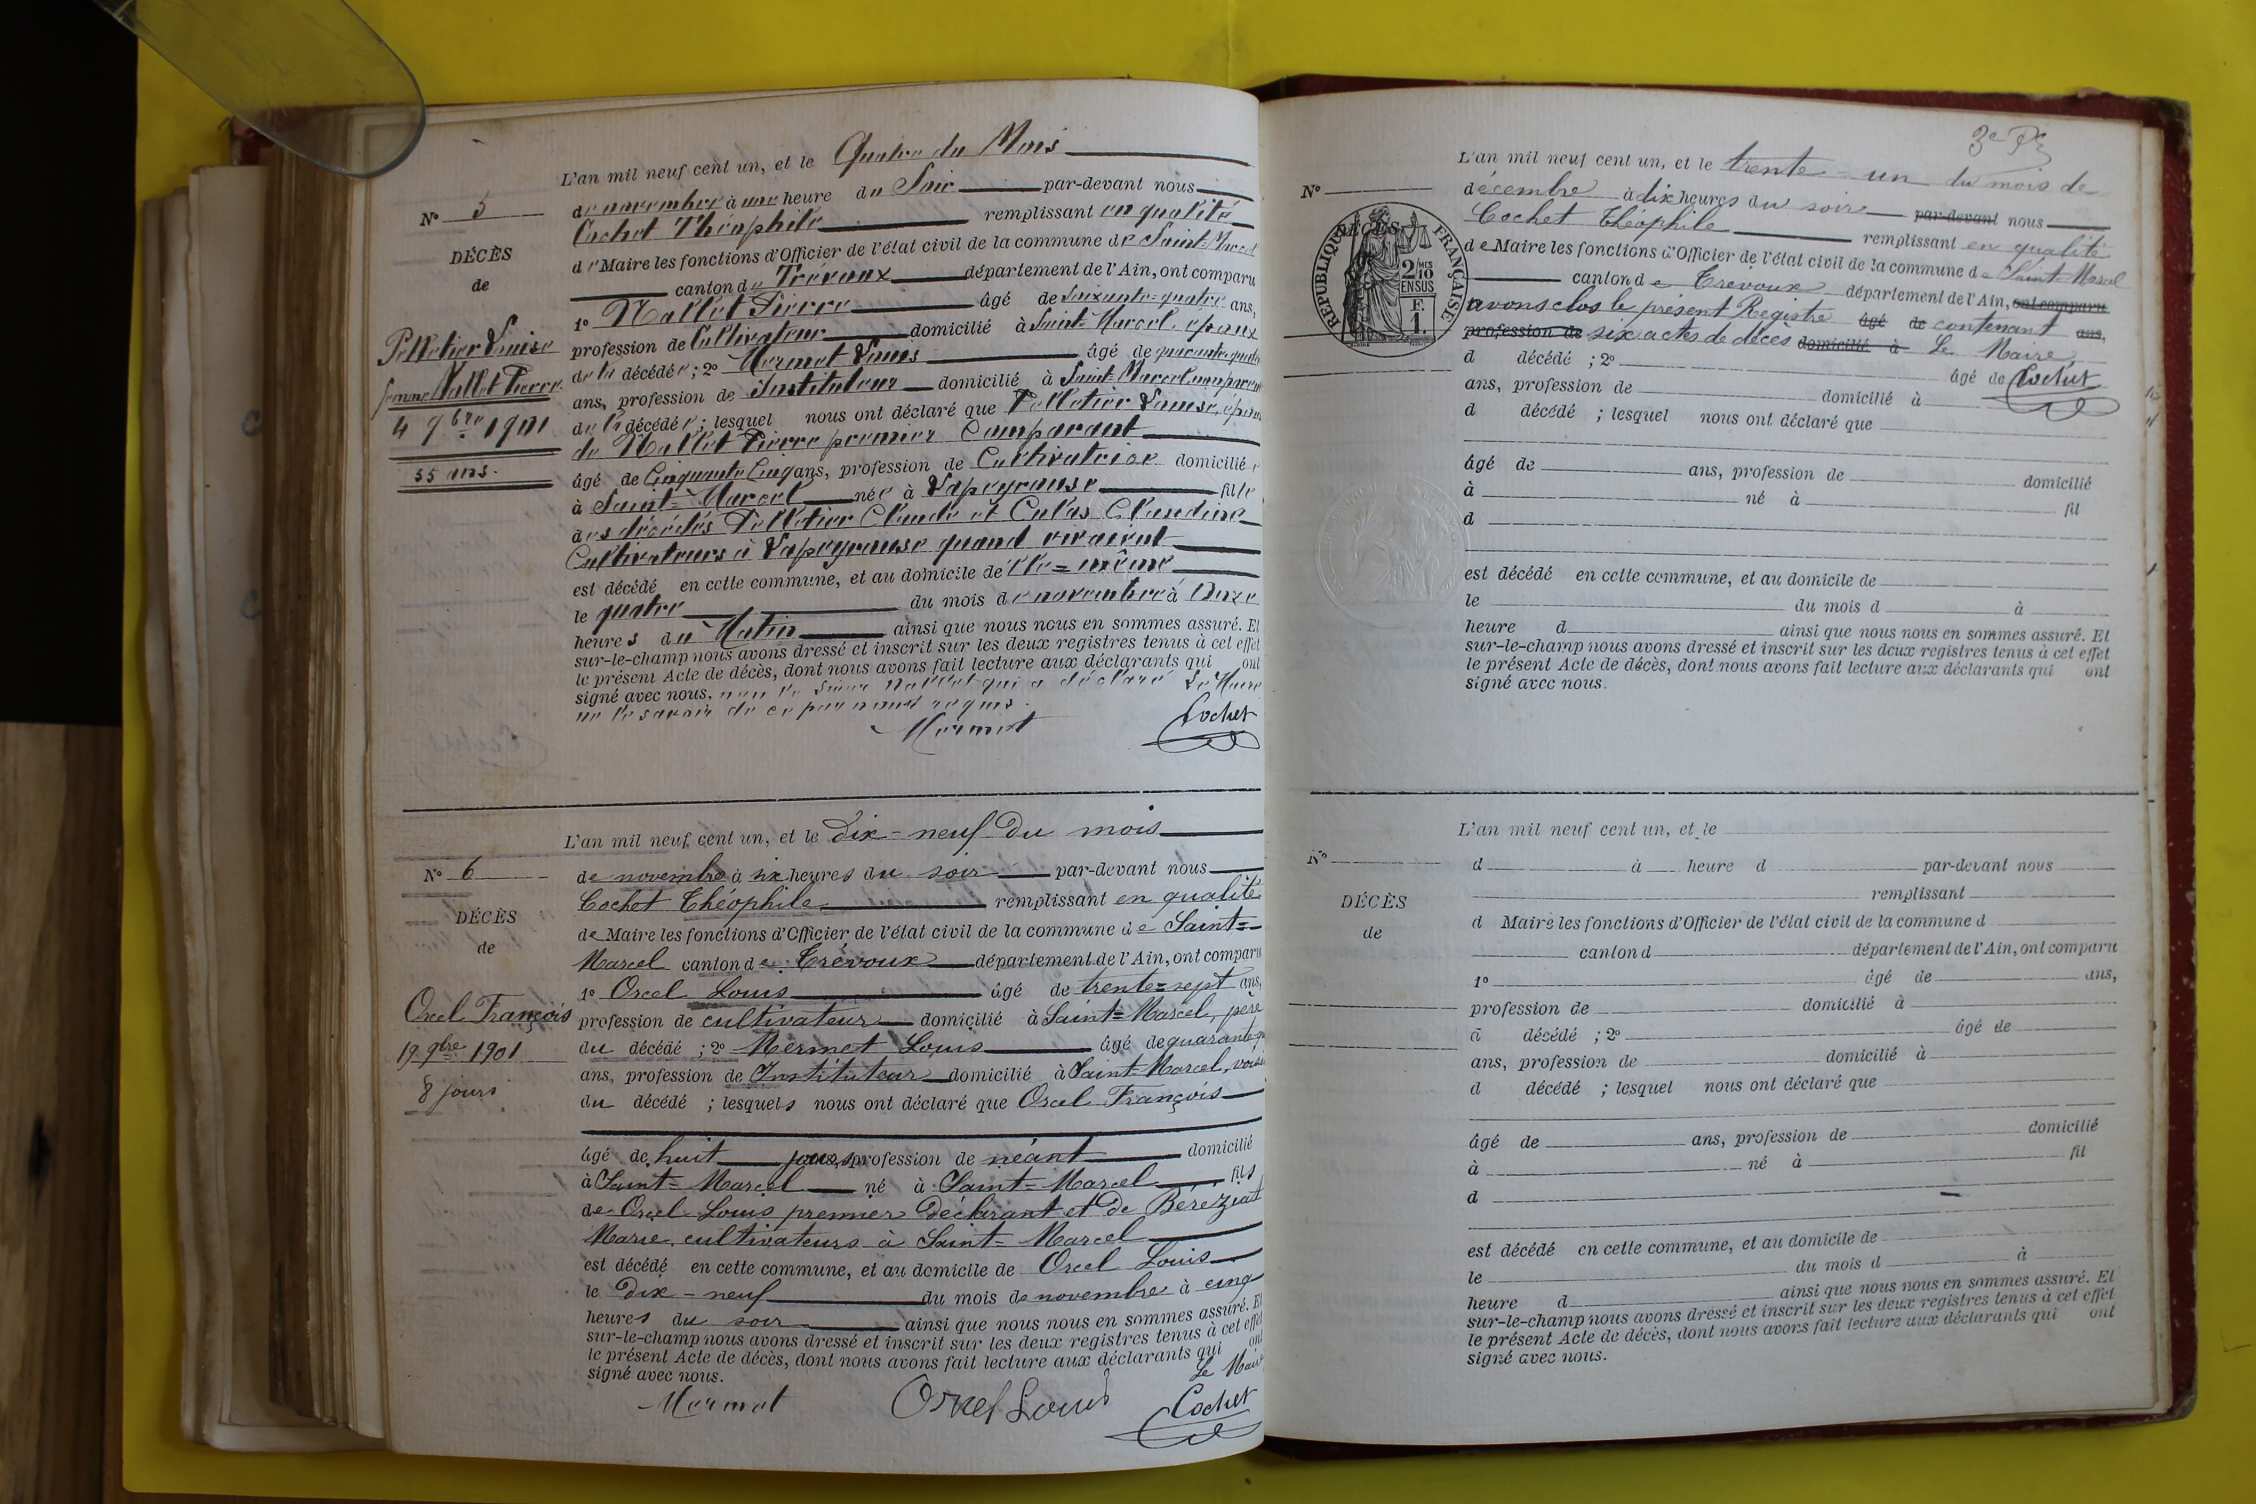 N° 5
DÉCÈS
de
Pelletier Louise
femme Mallet Pierre
4 9bre 1901
55 ans.
L'an mil neuf cent un, et le Quatre du Mois
de novembre à une heure du Soir par-devant nous
Cochet Théophile remplissant en qualité
de Maire les fonctions d'Officier de l'état civil de la commune de Saint-Marcel
canton de Trévoux département de l'Ain, ont comparu
1° Mallet Pierre âgé de soixante-quatre ans,
profession de Cultivateur domicilié à Saint-Marcel, époux
de la décédée ; 2° Mermet Louis âgé de quarante
ans, profession de Instituteur domicilié à Saint-Marcel
de la décédée ; lesquel nous ont déclaré que Pelletier Louise, épouse
de Mallet Pierre premier Comparant
âgé de Cinquante Cinq ans, profession de Cultivatrice domicilié e
à Saint-Marcel née à Lapeyrouse fille
des décédés Pelletier Claude et Calas Claudine
Cultivateurs à Lapeyrouse quand vivaient
est décédé en cette commune, et au domicile de elle-même
le quatre du mois de novembre à Onze
heures du Matin ainsi que nous nous en sommes assuré. Et
sur-le-champ nous avons dressé et inscrit sur les deux registres tenus à cet effet
le présent Acte de décès, dont nous avons fait lecture aux déclarants qui ont
signé avec nous, non le Sieur Mallet qui a déclaré Le Maire
ne le savoir de ce par nous requis.
Mermet Cochet
N° 6
DÉCÈS
de
Orcel François
19 9bre 1901
8 jours
L'an mil neuf cent un, et le Dix-neuf Du mois
de novembre à six heures du soir par-devant nous
Cochet Théophile remplissant en qualité
de Maire les fonctions d'Officier de l'état civil de la commune de Saint-
Marcel canton de Trévoux département de l'Ain, ont comparu
1° Orcel Louis âgé de trente-sept ans,
profession de cultivateur domicilié à Saint-Marcel, père
du décédé ; 2° Mermet Louis âgé de quarante
ans, profession de Instituteur domicilié à Saint-Marcel, voisin
du décédé ; lesquels nous ont déclaré que Orcel François
âgé de huit jours, profession de néant domicilié
à Saint-Marcel né à Saint-Marcel fils
de Orcel Louis premier Déclarant et de Béréziat
Marie, cultivateurs à Saint-Marcel
est décédé en cette commune, et au domicile de Orcel Louis
le Dix-neuf du mois de novembre à cinq
heures du soir ainsi que nous nous en sommes assuré. Et
sur-le-champ nous avons dressé et inscrit sur les deux registres tenus à cet effet
le présent Acte de décès, dont nous avons fait lecture aux déclarants qui ont
signé avec nous. Le Maire
Mermet Orcel Louis Cochet
N°
DÉCÈS
RÉPUBLIQUE FRANÇAISE
2/10 MES
EN SUS
1 F.
L'an mil neuf cent un, et le trente-un du mois de
décembre à dix heures du soir par-devant nous
Cochet Théophile remplissant en qualité
de Maire les fonctions d'Officier de l'état civil de la commune de Saint-Marcel
canton de Trévoux département de l'Ain, ont comparu
avons clos le présent Registre âgé de contenant ans,
profession de six actes de décès domicilié à Le Maire
d décédé ; 2° âgé de Cochet
ans, profession de domicilié à
d décédé ; lesquel nous ont déclaré que
âgé de ans, profession de domicilié
à né à fil
d
est décédé en cette commune, et au domicile de
le du mois d à
heure d ainsi que nous nous en sommes assuré. Et
sur-le-champ nous avons dressé et inscrit sur les deux registres tenus à cet effet
le présent Acte de décès, dont nous avons fait lecture aux déclarants qui ont
signé avec nous.
N°
DÉCÈS
de
L'an mil neuf cent un, et le
d à heure d par-devant nous
remplissant
d Maire les fonctions d'Officier de l'état civil de la commune d
canton d département de l'Ain, ont comparu
1° âgé de ans,
profession de domicilié à
d décédé ; 2° âgé de
ans, profession de domicilié à
d décédé ; lesquel nous ont déclaré que
âgé de ans, profession de domicilié
à né à fil
d
est décédé en cette commune, et au domicile de
le du mois d à
heure d ainsi que nous nous en sommes assuré. Et
sur-le-champ nous avons dressé et inscrit sur les deux registres tenus à cet effet
le présent Acte de décès, dont nous avons fait lecture aux déclarants qui ont
signé avec nous.